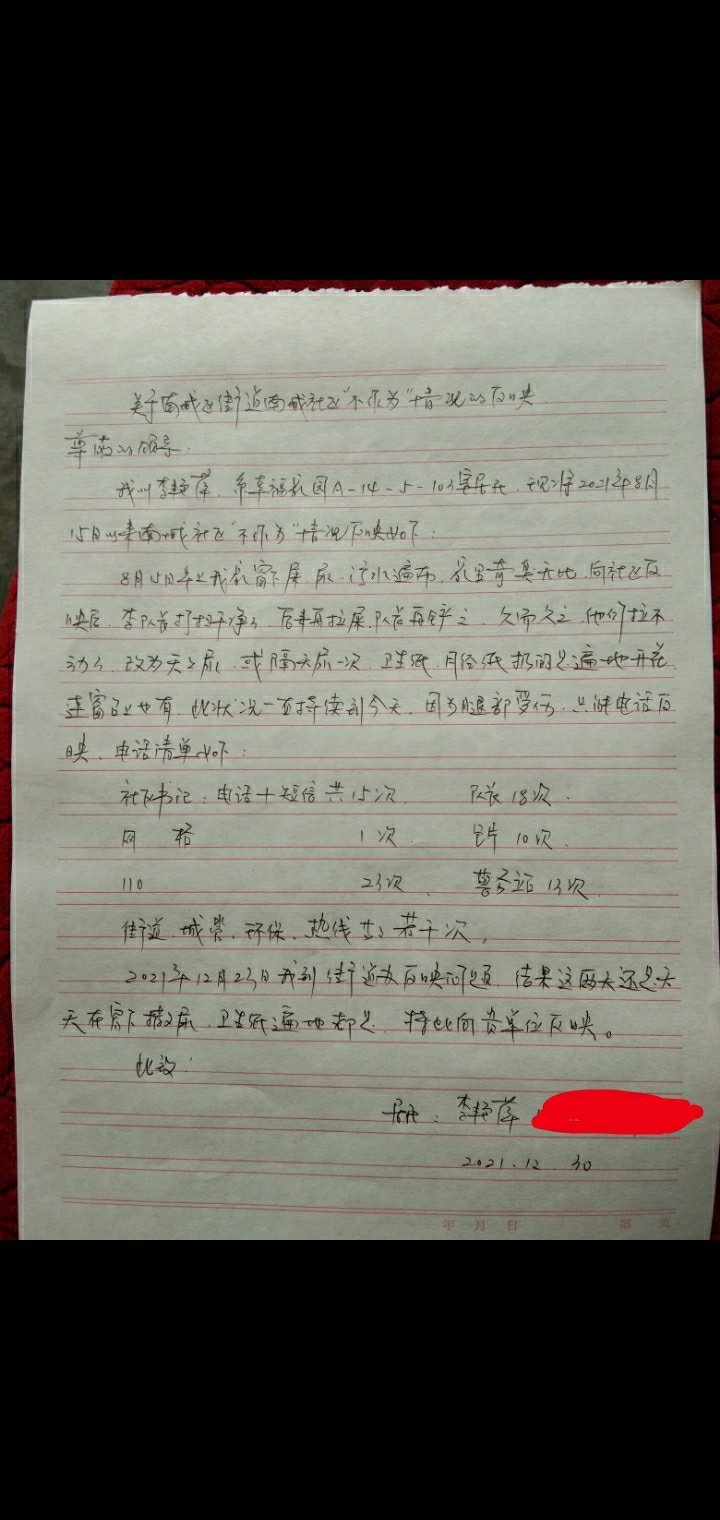 关于南城区街道南城社区"不作为"情况的反映.
尊敬的领导.
我叫李艳萍. 系幸福花园A-14-5-103室居民, 现将2021年8月
15日以来南城社区"不作为"情况反映如下:
8月15日早上我家窗下屎、尿、污水遍布, 家里奇臭无比, 向社区反
映后, 李队长打扫干净了, 后来再拉屎,队长再铲之, 久而久之, 他们拉不
动了, 改为天天尿, 或隔天尿一次, 卫生纸、月经纸扔的是遍地开花,
连窗台上也有, 此状况一直持续到今天, 因为腿部受伤, 只能电话反
映、电话清单如下:
社区书记: 电话+短信共15次 队长 18次.
网格 1次 片 10次.
110 23次、 13次
街道、城管、环保、热线共若干次。
2021年12月23日我到街道办反映问题, 结果这两天还是天
天在窗下撒尿、卫生纸遍地都是, 特此向贵单位反映。
此致:
居民: 李艳萍
2021.12.30
年 月 日 第 页